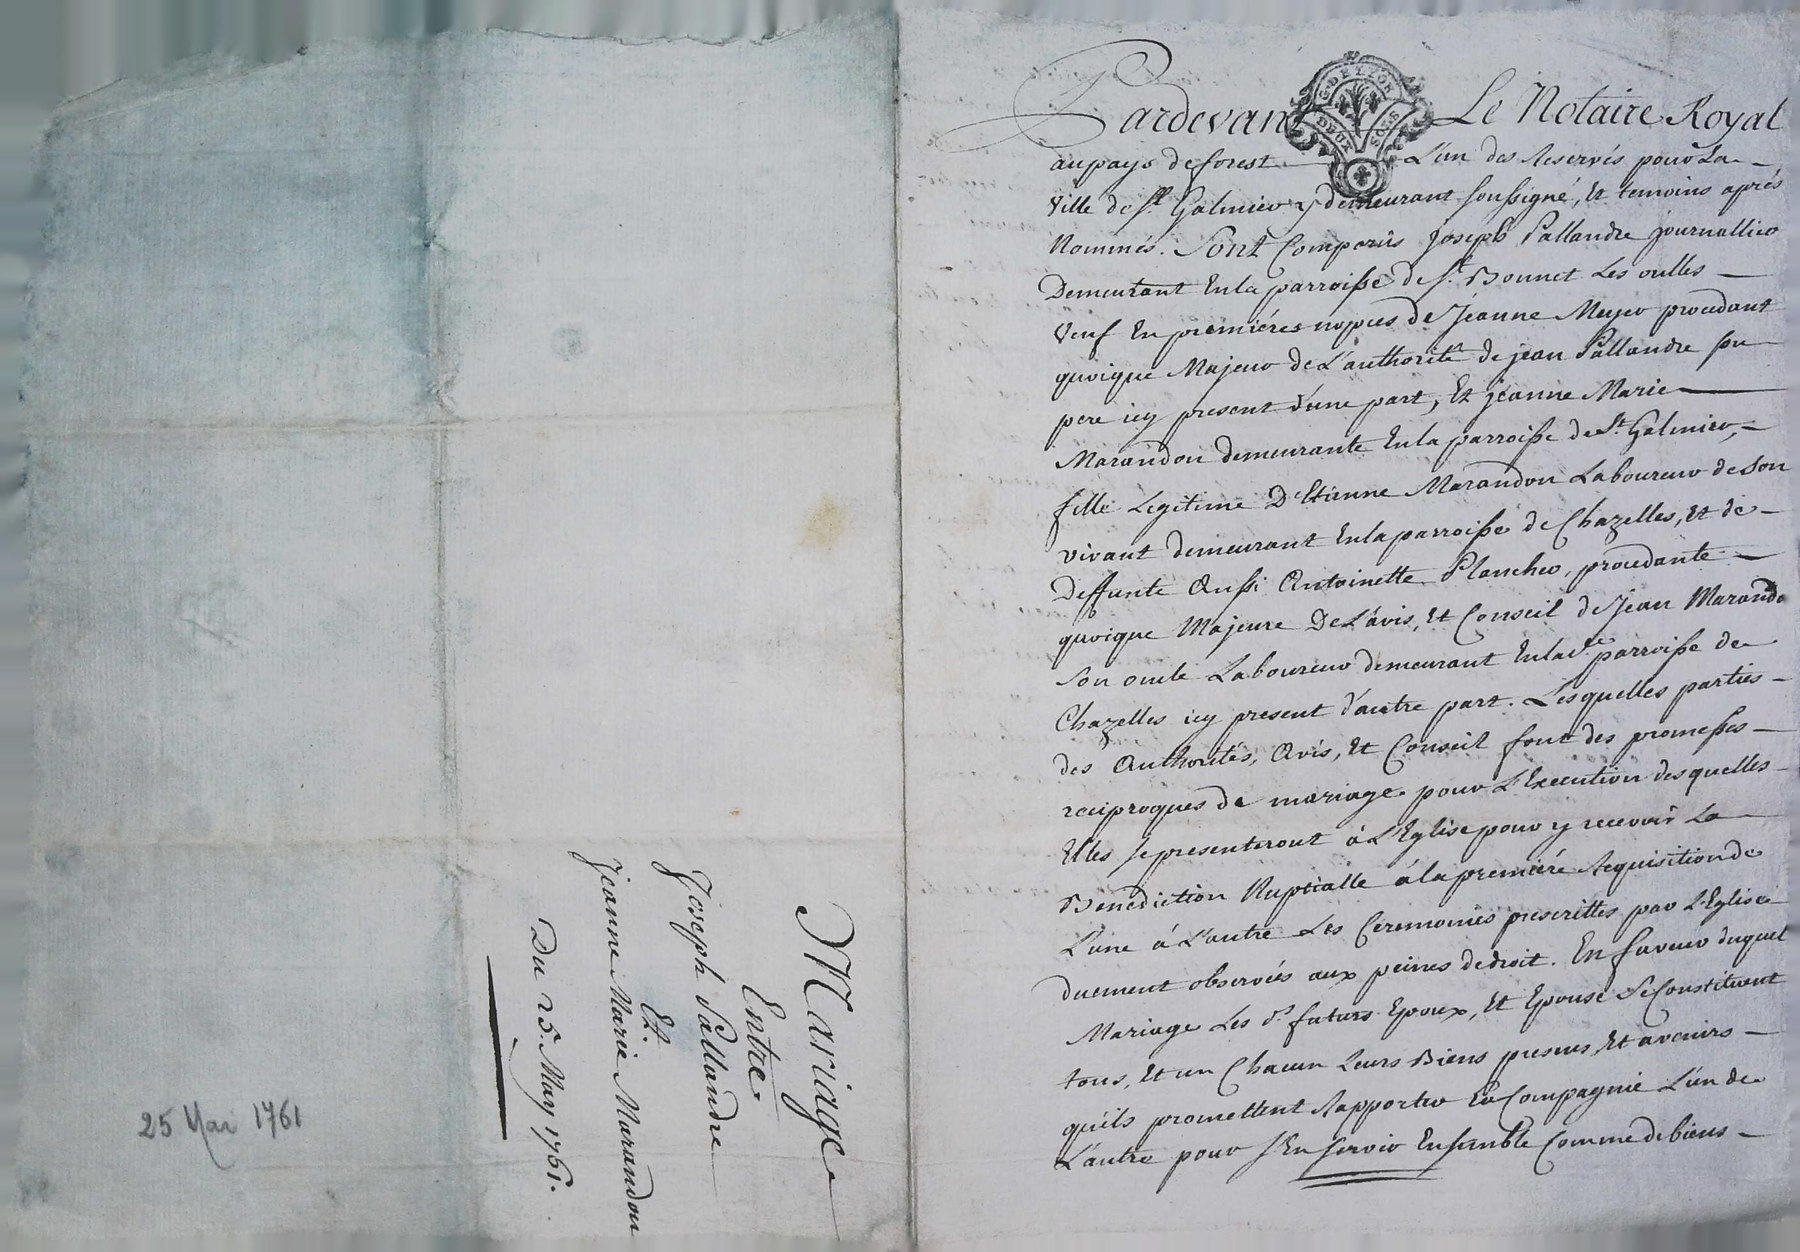 Mariage
Entre
Joseph Pallandre
Et.
Jeanne Marie Marandon
Du 25. May 1761.
25 Mai 1761
G. DE LYON
DEUX SOLS
Pardevant Le Notaire Royal
au pays de forest L'un des reservés pour La
Ville de St. Galmier y demeurant soussigné, Et temoins aprés
Nommés. Sont Comparus Joseph Pallandre journallier
Demeurant En la parroisse de St. Bonnet Les oulles
Veuf En premiéres nopces de Jeanne Meyer procedant
quoique Majeur de L'authorité de jean Pallandre son
pere icy present d'une part, Et jeanne Marie
Marandon demeurante En la parroisse de St. Galmier,
fille Legitime D'Etienne Marandon Laboureur de son
vivant demeurant En la parroisse de Chazelles, Et de
Deffunte Aussi Antoinette Plancher, procedante
quoique Majeure De L'avis, Et Conseil de Jean Marando
son oncle Laboureur demeurant En lad.e parroisse de
Chazelles icy present d'autre part. Lesquelles parties
des Authorités, Avis, Et Conseil font des promesses
reciproques de mariage pour L'Execution desquelles
Elles se presenteront à L'Eglise pour y recevoir La
Benediction Nuptialle á la premiére Requisition de
L'une á L'autre Les Ceremonies prescrittes par L'Eglise
duement observées aux peines de droit. En faveur duquel
Mariage Les ds. futurs Epoux, Et Epouse Se Constituent
tous, Et un Chacun Leurs Biens presens, Et avenirs
qu'ils promettent Rapporter En Compagnie L'un de
L'autre pour s'En servir Ensemble Comme de biens